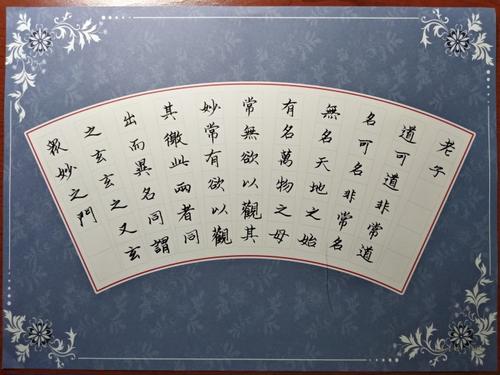 老子
道可道非常道
名可名非常名
無名天地之始
有名萬物之母
常無欲以觀其
妙常有欲以觀
其徼此兩者同
出而異名同謂
之玄玄之又玄
衆妙之門